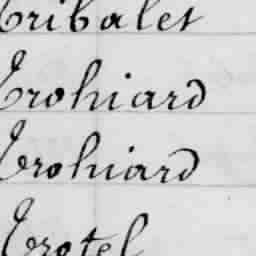 Tribalet
Trohiard
Trohiard
Trotel